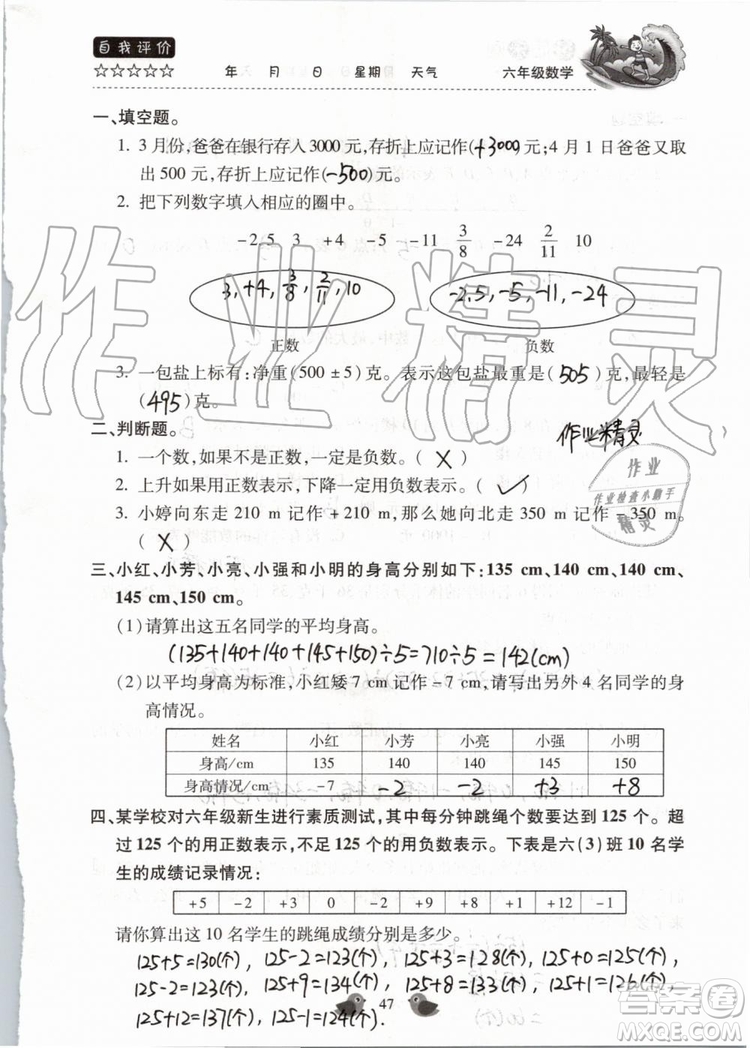 自我评价
☆☆☆☆☆ 年 月 日 星期 天气 六年级数学
一、填空题。
1. 3月份,爸爸在银行存入3000元,存折上应记作(+3000)元;4月1日爸爸又取
出500元,存折上应记作(-500)元。
2. 把下列数字填入相应的圈中。
-2.5 3 +4 -5 -11 3/8 -24 2/11 10
3, +4, 3/8, 2/11, 10 -2.5, -5, -11, -24
正数 负数
3. 一包盐上标有:净重(500±5)克。表示这包盐最重是(505)克,最轻是
(495)克。
作业精灵
二、判断题。
1. 一个数,如果不是正数,一定是负数。( X )
2. 上升如果用正数表示,下降一定用负数表示。( ✓ )
3. 小婷向东走210 m记作+210 m,那么她向北走350 m记作-350 m。
( X )
作业
作业检查小助手
精灵
三、小红、小芳、小亮、小强和小明的身高分别如下:135 cm、140 cm、140 cm、
145 cm、150 cm。
(1)请算出这五名同学的平均身高。
(135+140+140+145+150)÷5=710÷5=142(cm)
(2)以平均身高为标准,小红矮7 cm记作-7 cm,请写出另外4名同学的身
高情况。
姓名 小红 小芳 小亮 小强 小明
身高/cm 135 140 140 145 150
身高情况/cm -7 -2 -2 +3 +8
四、某学校对六年级新生进行素质测试,其中每分钟跳绳个数要达到125个。超
过125个的用正数表示,不足125个的用负数表示。下表是六(3)班10名学
生的成绩记录情况:
+5 -2 +3 0 -2 +9 +8 +1 +12 -1
请你算出这10名学生的跳绳成绩分别是多少。
125+5=130(个) 125-2=123(个) 125+3=128(个) 125+0=125(个)
125-2=123(个) 125+9=134(个) 125+8=133(个) 125+1=126(个)
125+12=137(个), 125-1=124(个).
47
作业精灵
答案圈
MXQE.COM